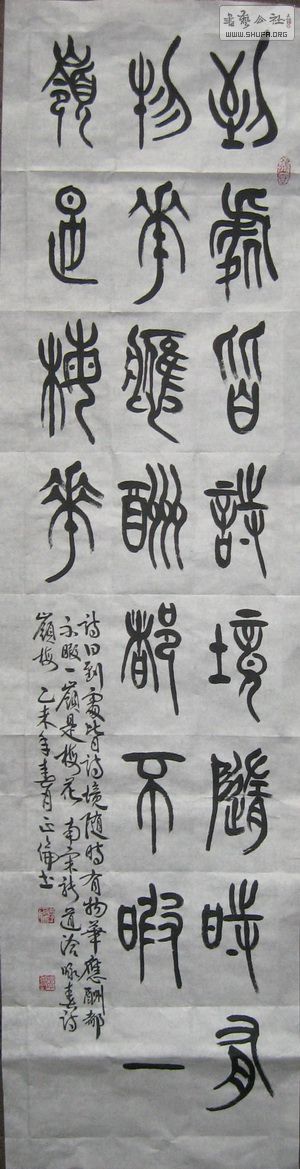 書藝公社
WWW.SHUFA.ORG
到處皆詩境隨時有
物華應酬都不暇一
嶺是梅華
詩曰到處皆詩境隨時有物華應酬都
不暇一嶺是梅花 南宋張道洽咏春詩
嶺梅 乙未年春月正伟书